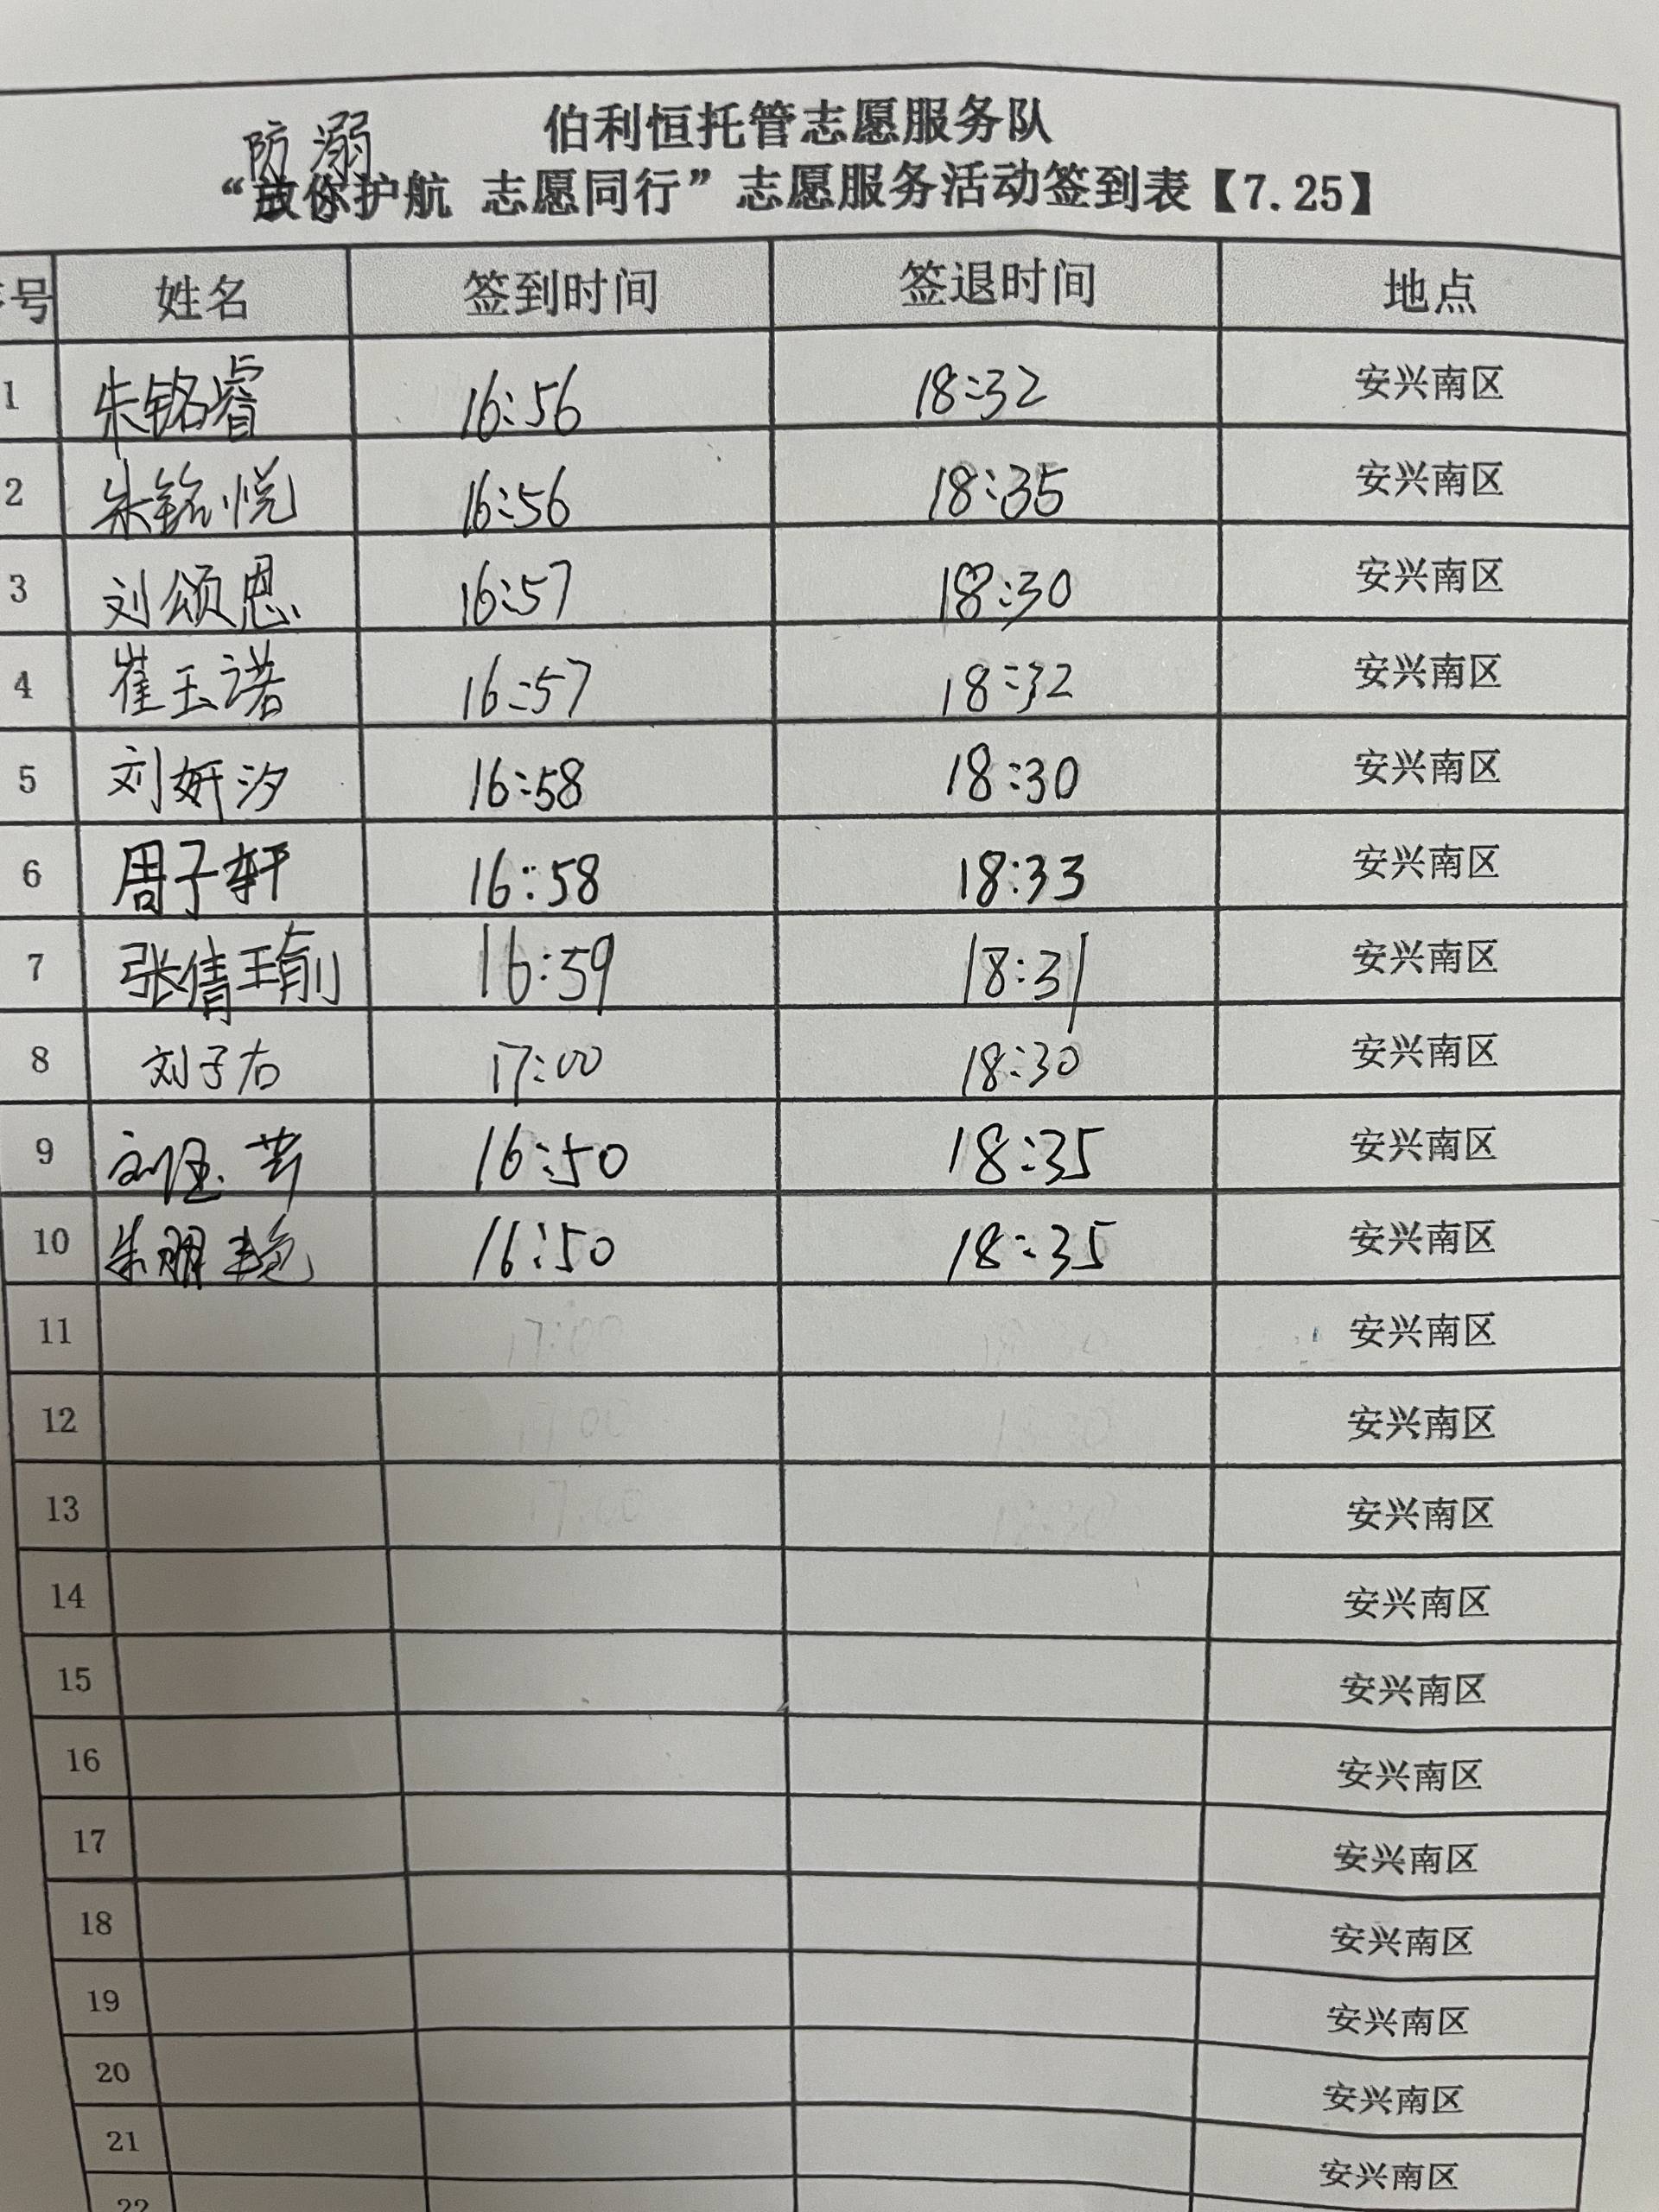 伯利恒托管志愿服务队
防溺
“护航 志愿同行”志愿服务活动签到表【7.25】
号 姓名 签到时间 签退时间 地点
1 朱铭睿 16:56 18:32 安兴南区
2 朱铭悦 16:56 18:35 安兴南区
3 刘颂恩 16:57 18:30 安兴南区
4 崔玉诺 16:57 18:32 安兴南区
5 刘妍汐 16:58 18:30 安兴南区
6 周子轩 16:58 18:33 安兴南区
7 张倩瑜 16:59 18:31 安兴南区
8 刘子右 17:00 18:30 安兴南区
9 刘 16:50 18:35 安兴南区
10 朱丽艳 16:50 18:35 安兴南区
11 安兴南区
12 安兴南区
13 安兴南区
14 安兴南区
15 安兴南区
16 安兴南区
17 安兴南区
18 安兴南区
19 安兴南区
20 安兴南区
21 安兴南区
22